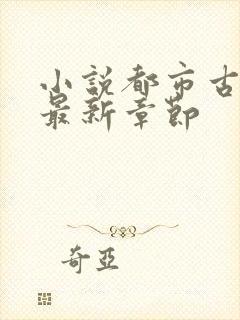 小说都市古
最新章节
奇亞